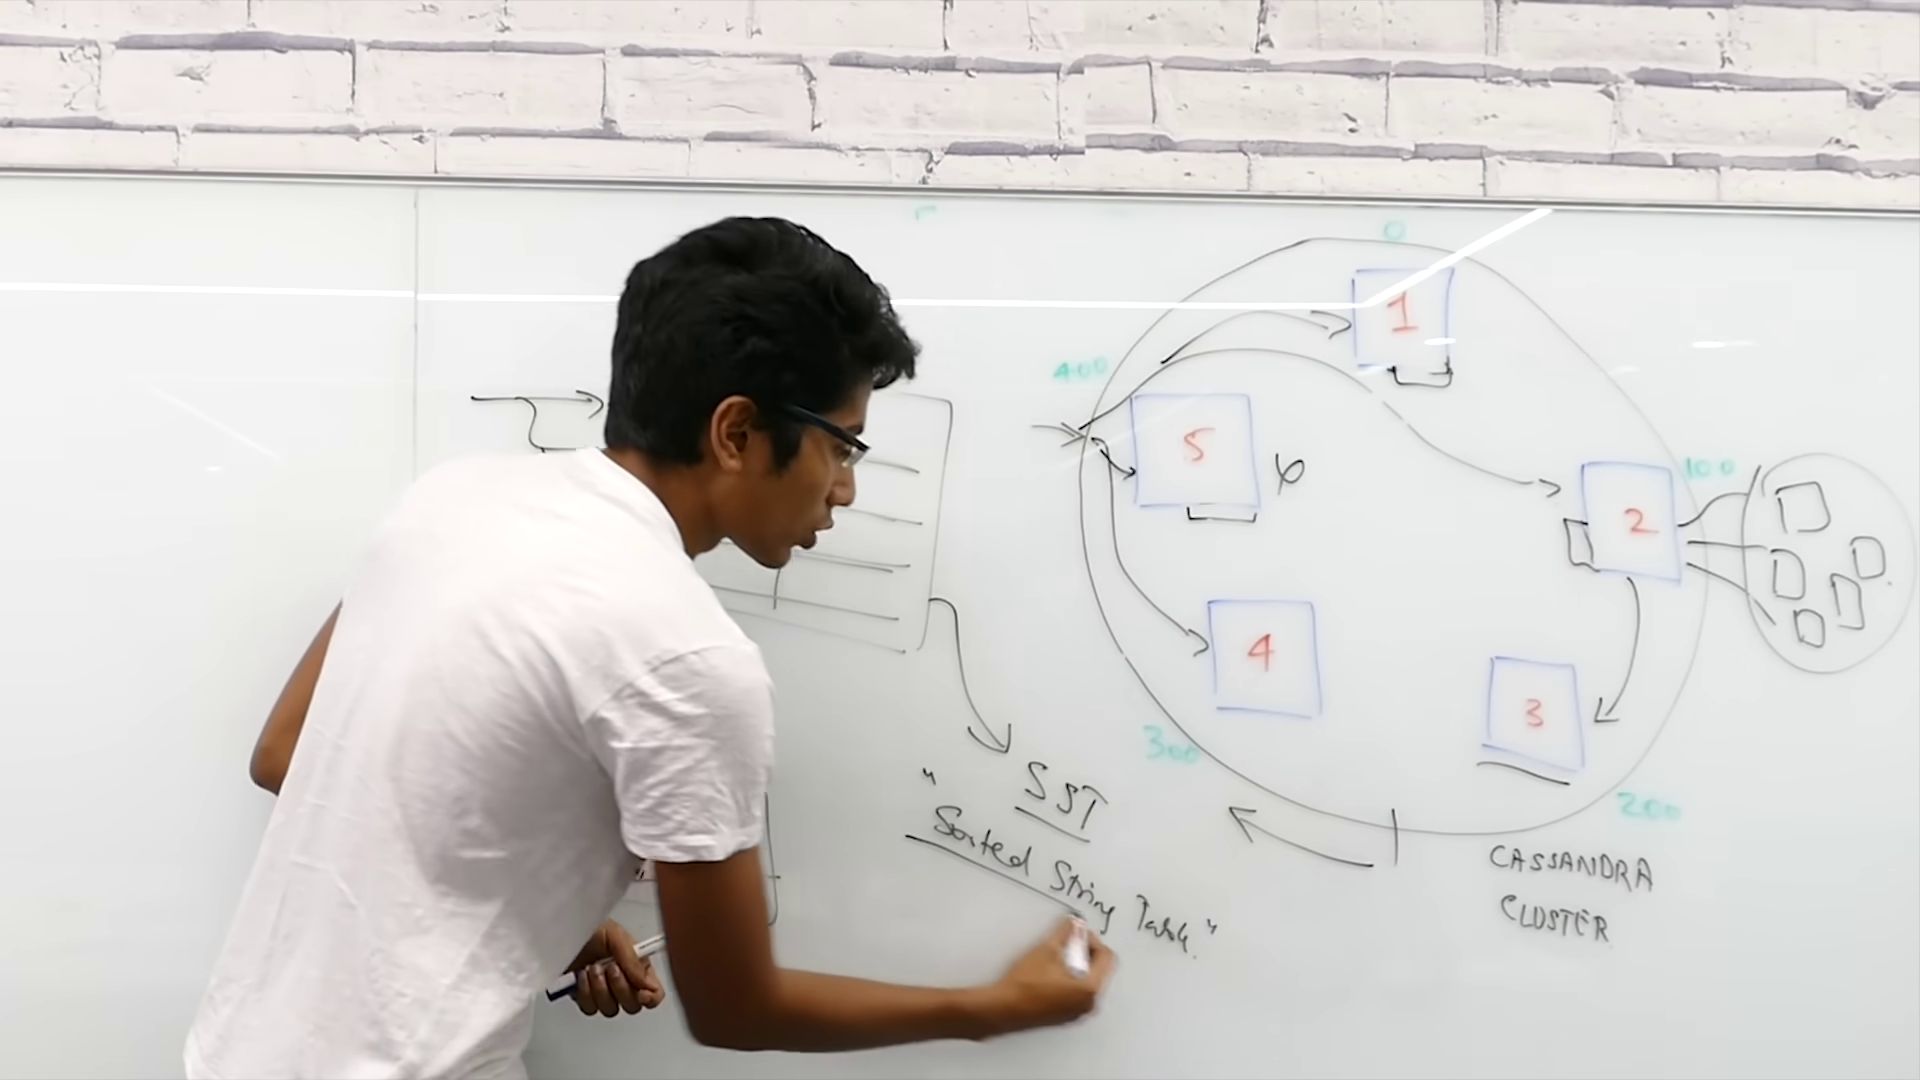 0
1
400
5
6
100
2
4
3
300
200
SST
"Sorted String Table."
CASSANDRA
CLUSTER